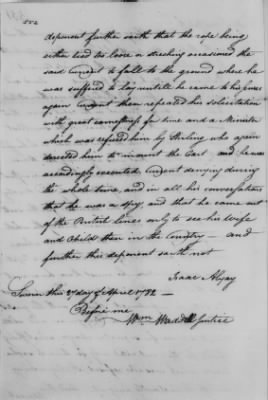 deponent further saith that the rope being
either tied too loose or streching occasioned the
said to fall to the ground where he
was suffered to lay untill he came to his senses
again then repeated his solicitation
with great earnestness for time and a Minister
which was refused him by Stirling who again
directed him to mount the Cart and he was
accordingly executed denying during
the whole time, and in all his conversation
that he was a spy, and that he came out
of the British lines only to see his Wife
and Child then in the Country — and
further this deponent saith not
Isaac
Sworn this 2 day of April 1782 —
Before me
Wm Justice